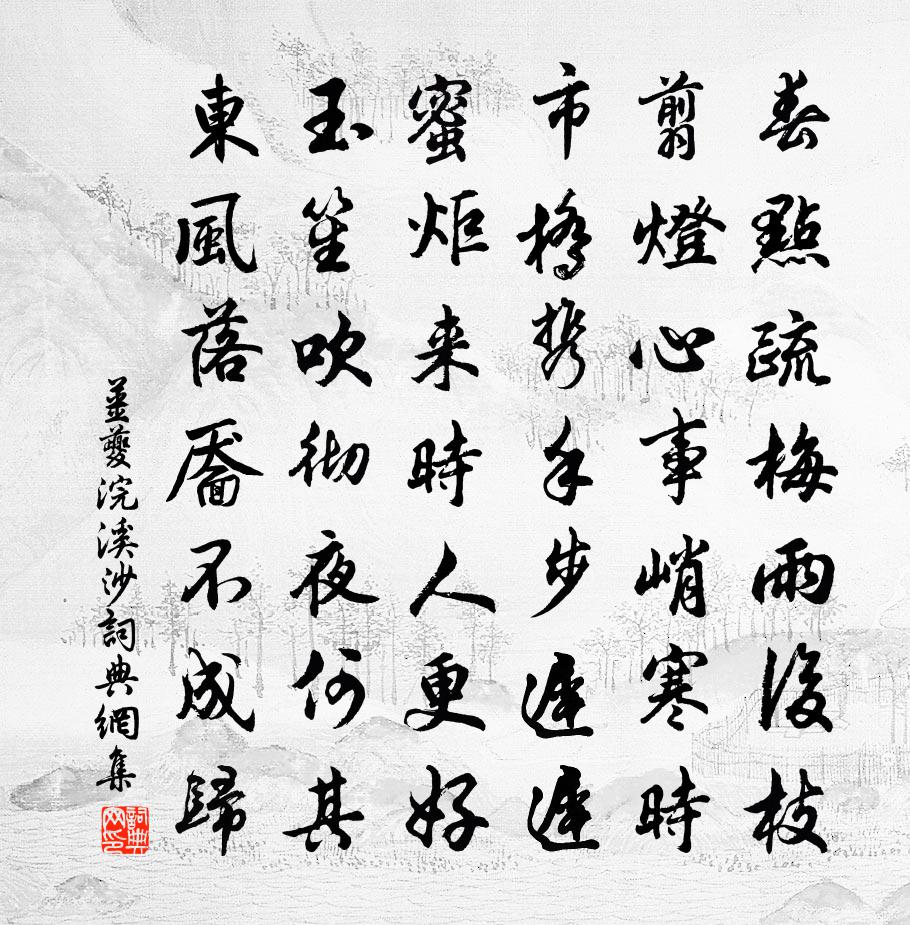 春點疏梅雨後枝
翦燈心事峭寒時
市橋攜手步遲遲
蜜炬来時人更好
玉笙吹彻夜何其
東風落靨不成歸
姜夔浣溪沙詞典網集
詞典网印